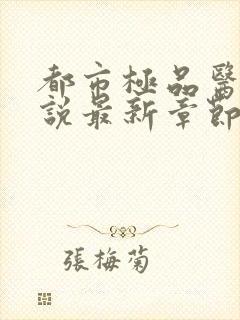 都市極品醫
說最新章節
張梅菊